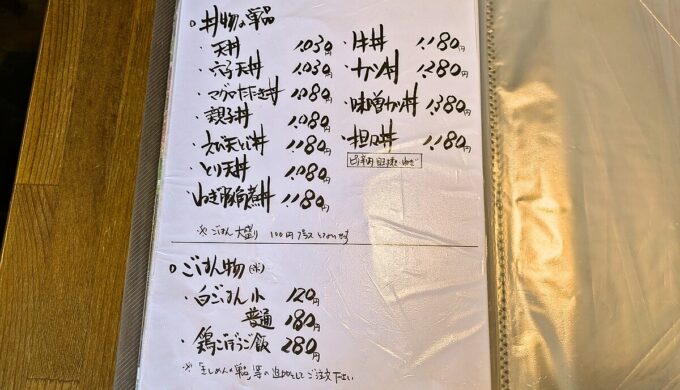 丼物の単品
・天丼 1,030円
・穴子天丼 1,030円
・マグロたたき丼 1,080円
・親子丼 1,080円
・えび天とじ丼 1,180円
・とり天丼 1,080円
・ねぎ豚角煮丼 1,180円
・牛丼 1,180円
・カツ丼 1,280円
・味噌カツ丼 1,380円
・担々丼 1,180円
※ごはん大盛り 100円プラスとなります
ごはん物(※)
・白ごはん 小 120円
普通 180円
・鶏ごぼうご飯 280円
※「きしめんの単品」等の追加としてご注文下さい